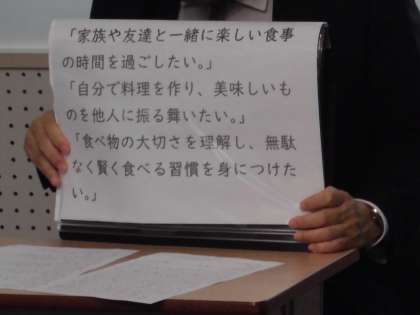 「家族や友達と一緒に楽しい食事
の時間を過ごしたい。」
「自分で料理を作り、美味しいも
のを他人に振る舞いたい。」
「食べ物の大切さを理解し、無駄
なく賢く食べる習慣を身につけた
い。」